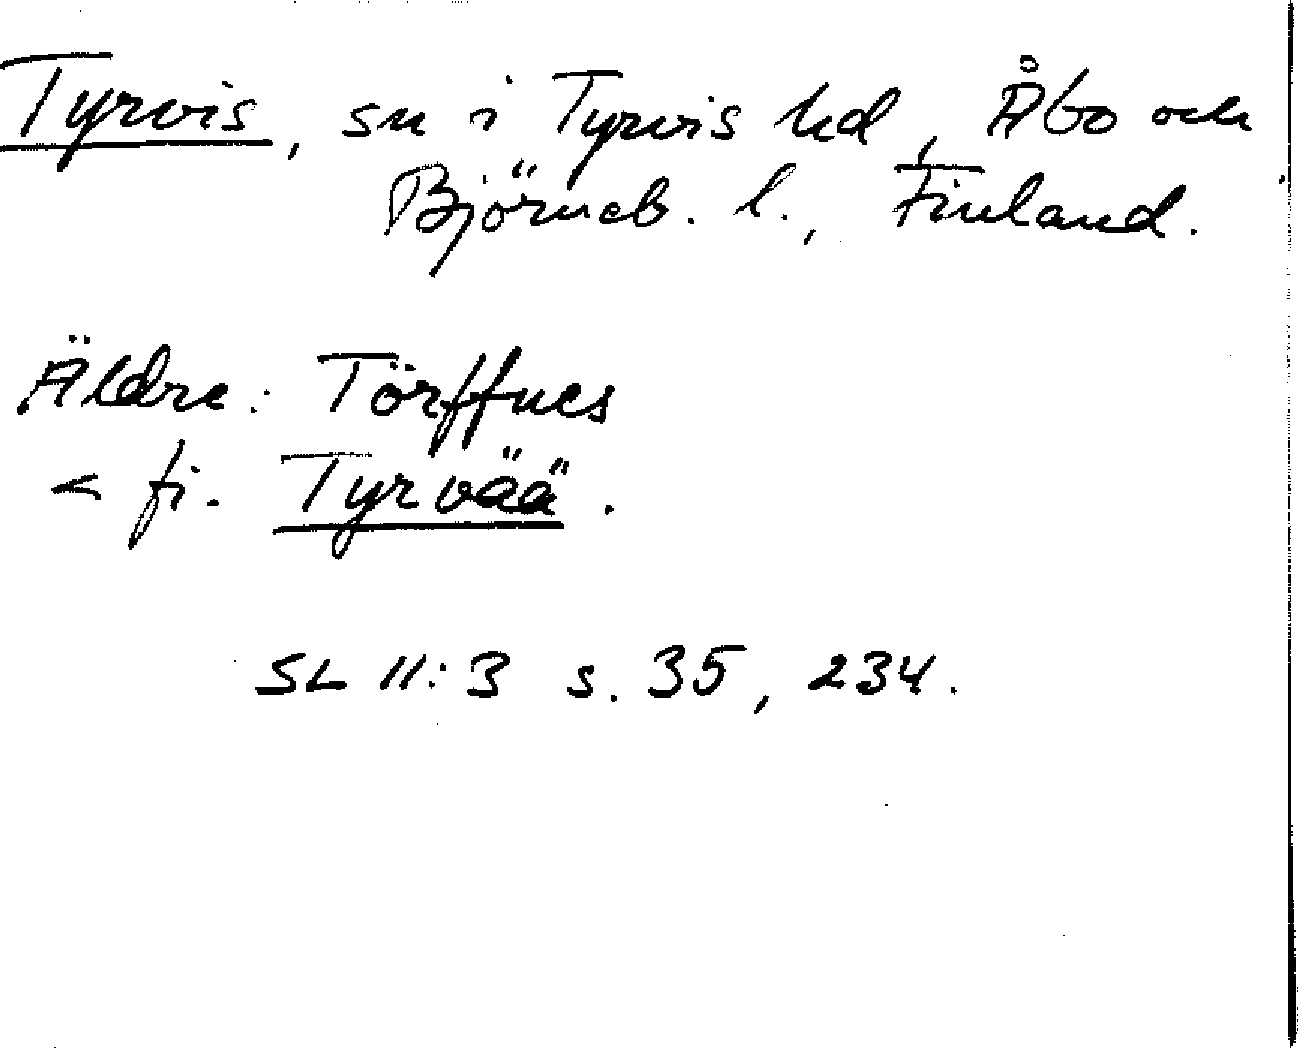 Tyrvis, sn i Tyrvis hd, Åbo och
Björneb. l., Finland.
Äldre: Törffnes
< fi. Tyrvää.
SL 11:3 s. 35, 234.